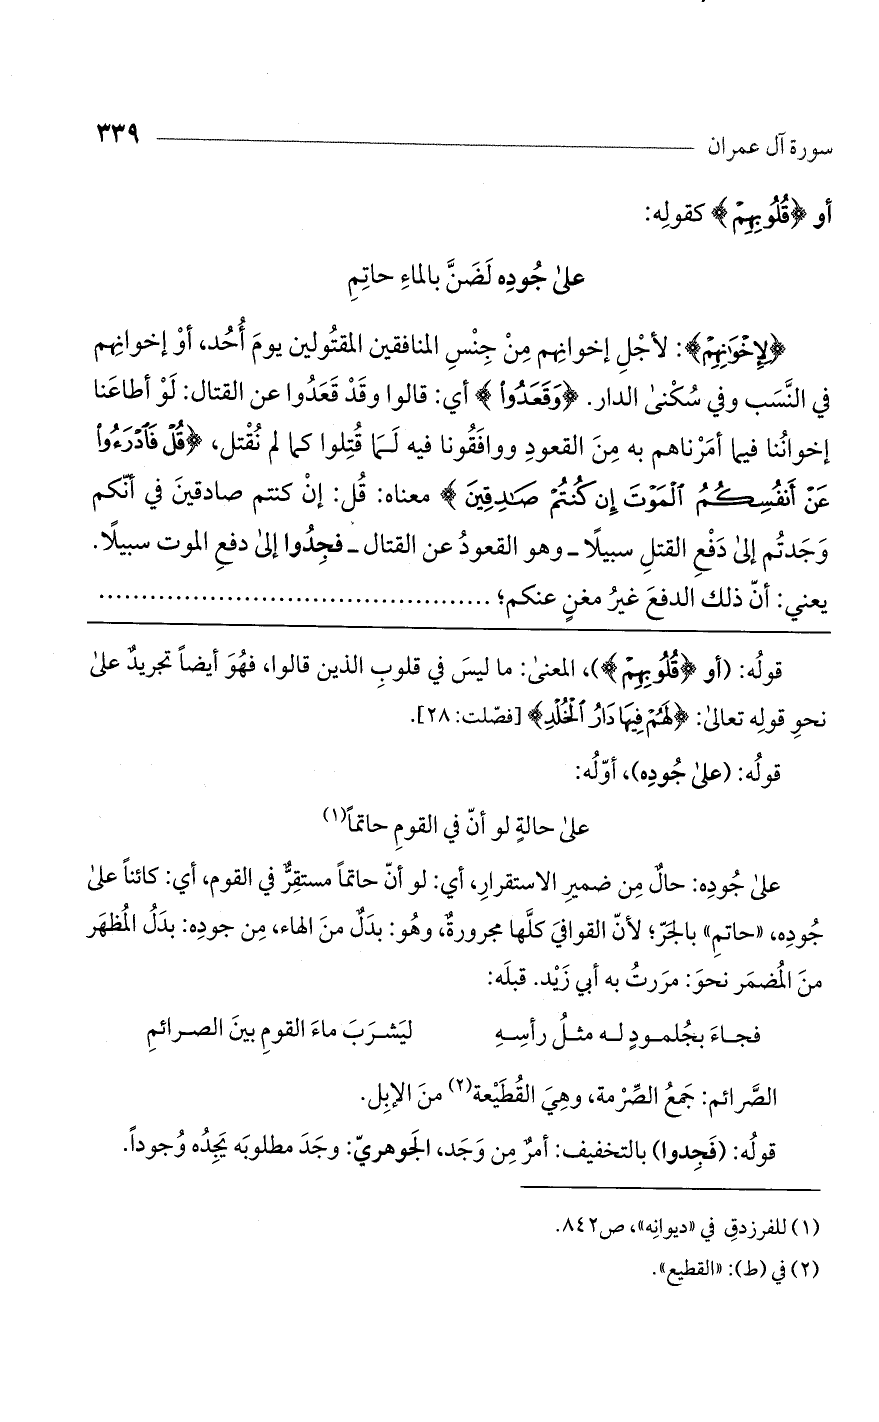 سورة آل عمران ــــــــــــــــــــ ٣٣٩
أو ﴿قُلُوبِهِمْ﴾ كقولِه:
علىٰ جُودِه لَضَنَّ بالماءِ حاتِمِ
﴿لِإِخْوَٰنِهِمْ﴾: لأجْلِ إخوانِهم مِنْ جِنْسِ المنافقين المقتُولين يومَ أُحُد، أوْ إخوانِهم
في النَّسَب وفي سُكْنىٰ الدار. ﴿وَقَعَدُوا۟﴾ أي: قالوا وقَدْ قَعَدُوا عن القتال: لَوْ أطاعَنا
إخوانُنا فيما أمَرْناهم به مِنَ القعودِ ووافَقُونا فيه لَـمَا قُتِلوا كما لم نُقْتل، ﴿قُلْ فَٱدْرَءُوا۟
عَنْ أَنفُسِكُمُ ٱلْمَوْتَ إِن كُنتُمْ صَٰدِقِينَ﴾ معناه: قُل: إنْ كنتم صادقينَ في أنّكم
وَجَدتُم إلىٰ دَفْعِ القتلِ سبيلًا ـ وهو القعودُ عن القتال ـ فجِدُوا إلىٰ دفعِ الموت سبيلًا.
يعني: أنّ ذلك الدفعَ غيرُ مغنٍ عنكم؛ ............................................
قولُه: (أو ﴿قُلُوبِهِمْ﴾)، المعنىٰ: ما ليسَ في قلوبِ الذين قالوا، فهُوَ أيضاً تجريدٌ علىٰ
نحوِ قولِه تعالىٰ: ﴿لَهُمْ فِيهَا دَارُ ٱلْخُلْدِ﴾ [فصّلت: ٢٨].
قولُه: (علىٰ جُودِه)، أوّلُه:
علىٰ حالةٍ لو أنّ في القومِ حاتماً(١)
علىٰ جُودِه: حالٌ مِن ضميرِ الاستقرارِ، أي: لو أنّ حاتماً مستقِرٌّ في القوم، أي: كائناً علىٰ
جُودِه، «حاتمِ» بالجَرّ؛ لأنّ القوافيَ كلَّها مجرورةٌ، وهُو: بدَلٌ منَ الهاء، مِن جودِه: بدَلُ المُظهَر
منَ المُضمَر نحوَ: مرَرتُ به أبي زَيْد. قبلَه:
فجـاءَ بجُلمـودٍ لـه مثـلُ رأسِـهِ ليَشـرَبَ ماءَ القومِ بينَ الصـرائمِ
الصَّرائم: جَمعُ الصِّرْمة، وهِيَ القُطَيْعة(٢) منَ الإبِل.
قولُه: (فَجِدوا) بالتخفيف: أمرٌ مِن وَجَد، الجَوهريّ: وجَدَ مطلوبَه يَجِدُه وُجوداً.
(١) للفرزدقِ في «ديوانِه»، ص٨٤٢.
(٢) في (ط): «القطيع».